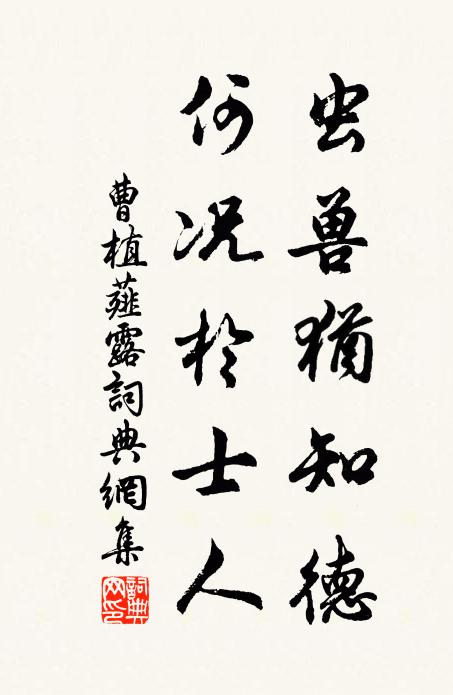 虫兽犹知德
何况於士人
曹植薤露詞典網集
詞典網印